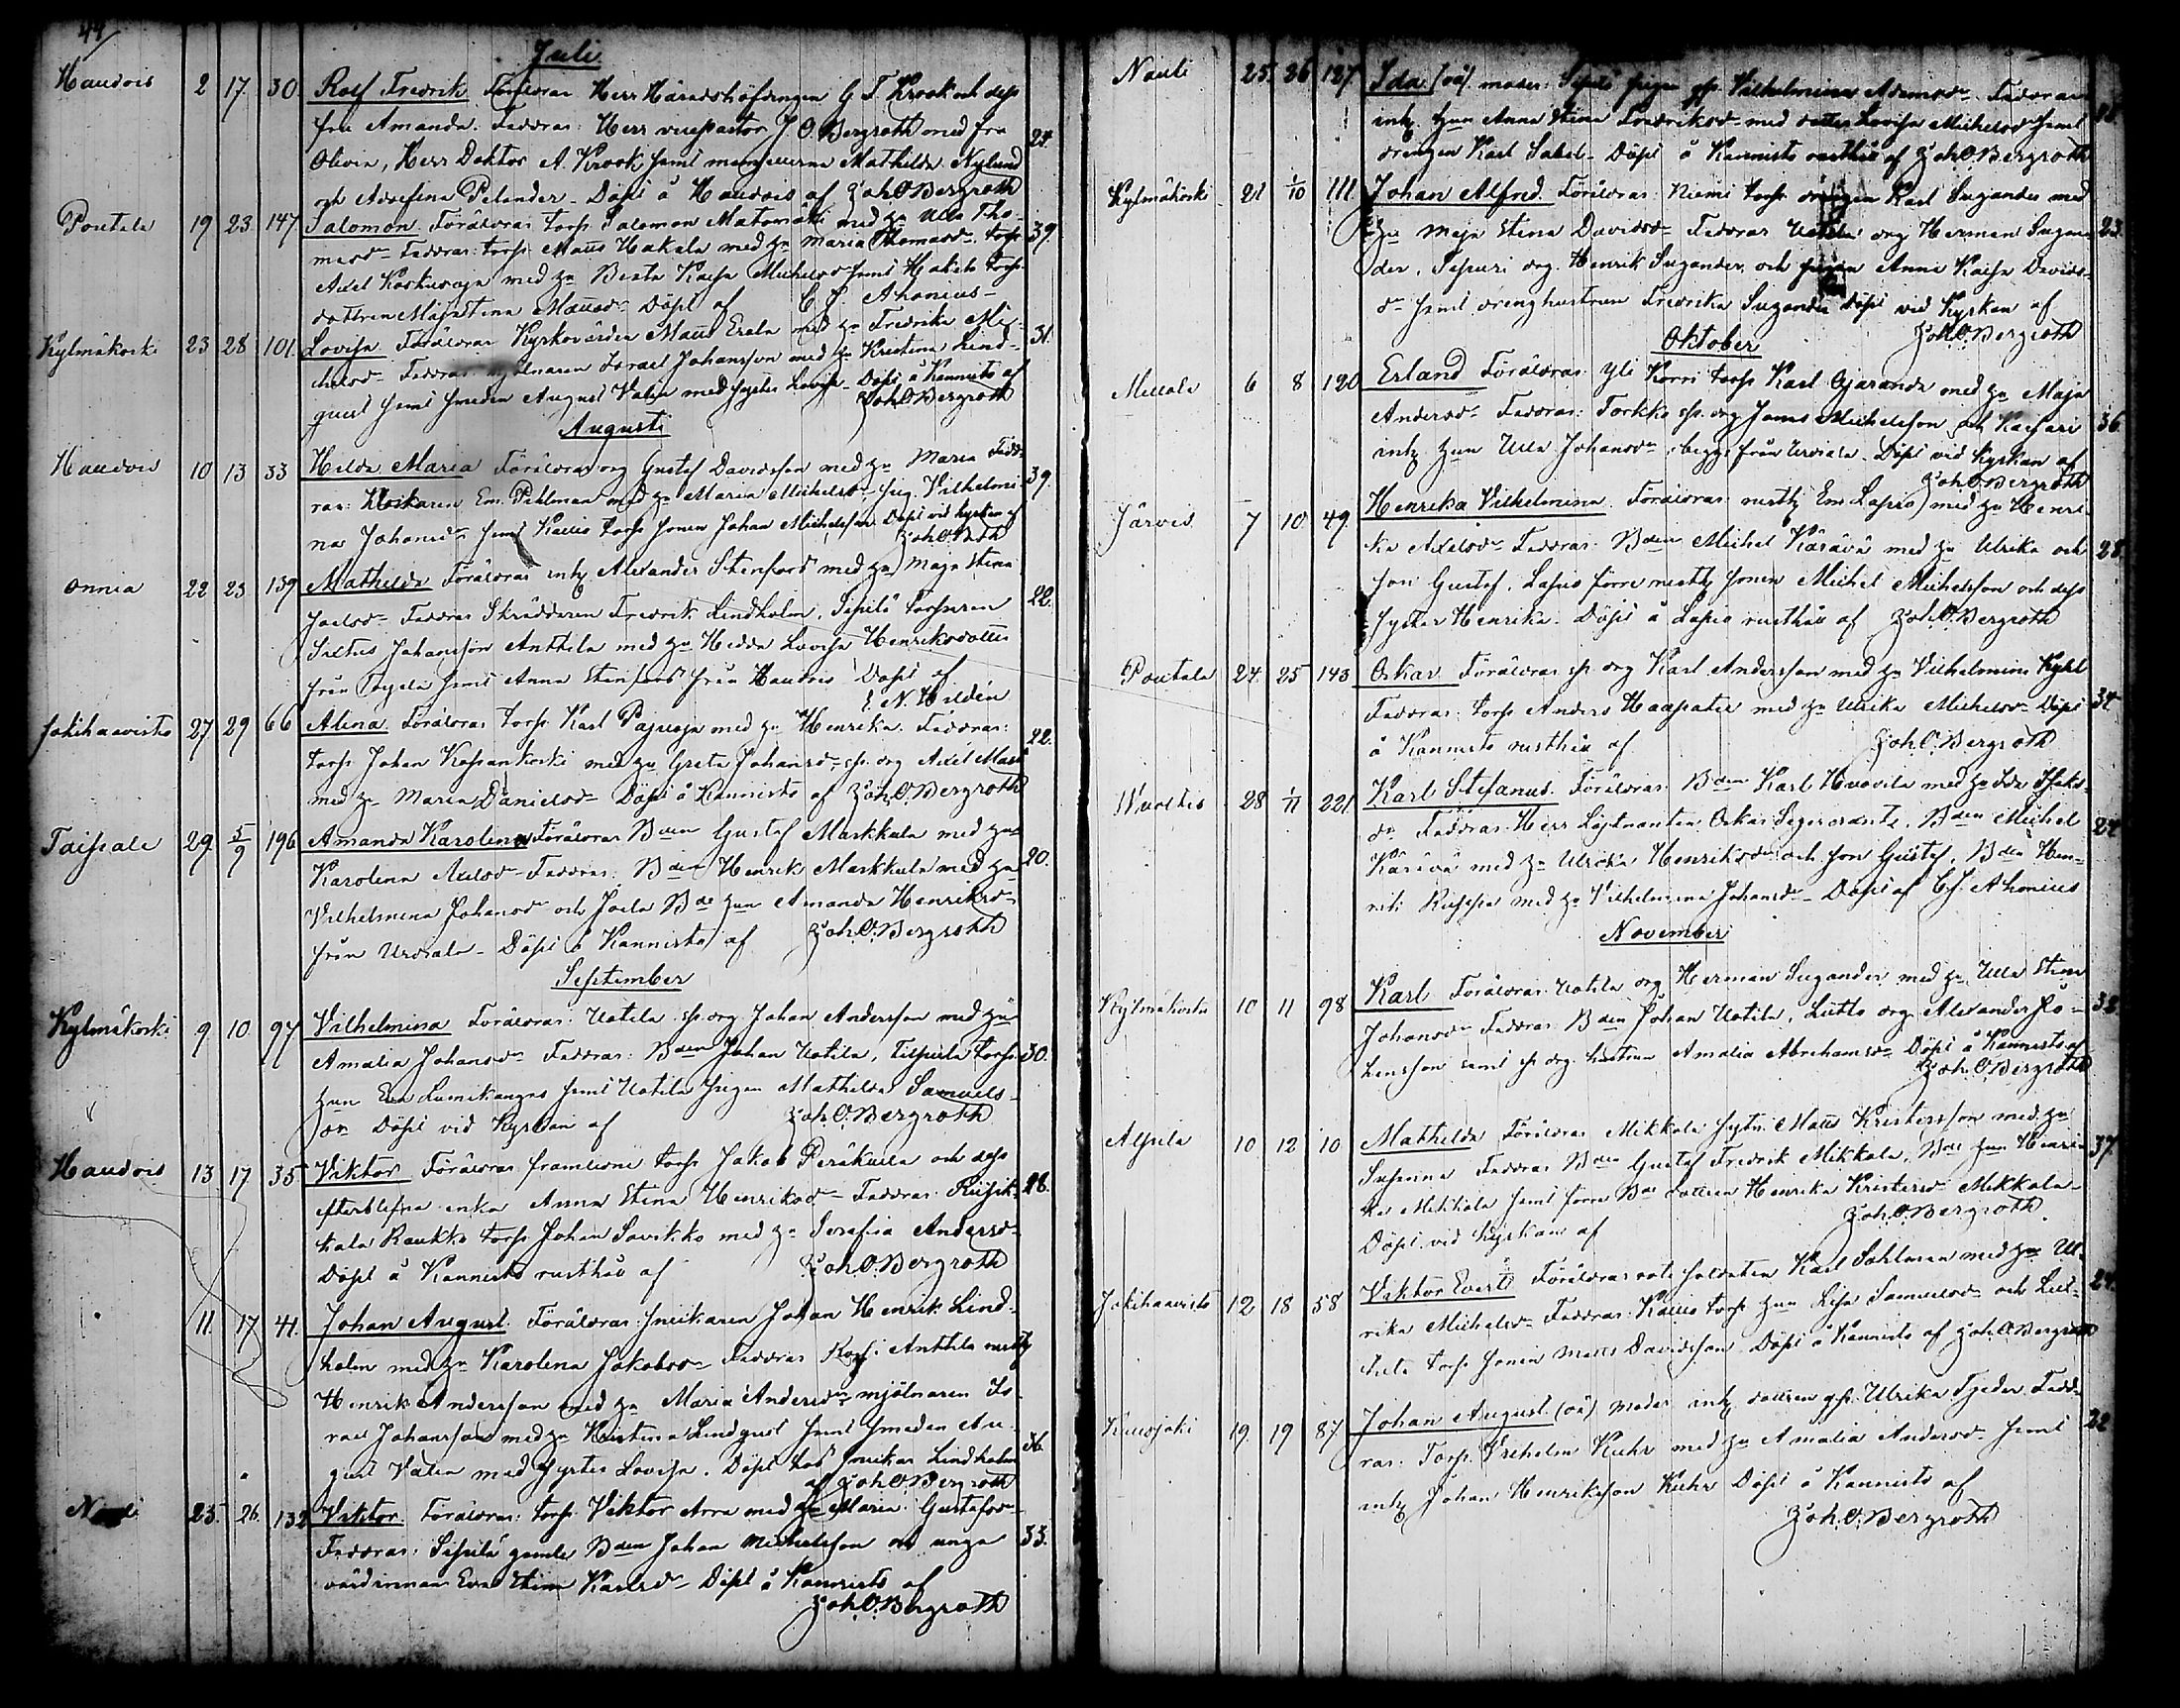 44
Juli
Haudois 2 17 30 Rolf Fredrik Föräldrar Herr Häradshöfdingen G F Krook och dess
fru Amanda. Faddrar: Herr vicepastor J. O. Bergroth med fru
Olivia, Herr Doktor A. Krook samt mamsellerna Mathilda Nylund 24.
och Adolfina Pelander. Döpt å Haudois af Joh. O. Bergroth
Pentala 19 23 147 Salomon Föräldrar torp. Salomon Matomäki med hu Ulla Tho-
masdr Faddrar: torp. Matts Hakala med hu Maria Thomasdr, torp. 39.
Axel Koskuoja med hu Beata Kajsa Michelsdr samt Hakala torp.
dottren Maja Stina Mattsdr Döpt af C. J. Ahonius
Kylmäkoski 23 28 101. Lovisa Föräldrar Kyrkovärden Matts Erola med hu Fredrika Mi- 31.
chelsdr Faddrar mjölnaren Israel Johansson med hu Kristina Lind-
qvist samt smeden August Valin med syster Lovisa. Döpt å Kannisto af
Joh. O. Bergroth
Augusti
Haudois 10 13 33 Hilda Maria Föräldrar drg Gustaf Davidsson med hu Maria Fadd-
rar: Em. Pihlman med hu Maria Michelsdr, pig. Vilhelmi- 39.
na Johansdr samt torp. sonen Johan Michelsson Döpt vid kyrkan af
Joh. O. Broth
Onnia 22 23 139 Mathilda Föräldrar inh Alexander Stenford med hu Maja Stina
Joelsdr Faddrar Skräddaren Fredrik Lindholm, Sipilä torparen 22.
Johansson Anthila med hu Hedda Lovisa Henriksdotter
från samt Anna Stenford från Haudois Döpt af
E. N. Hildén
Jokihaavisto 27 29 66 Alina Föräldrar torp. Karl Pajuoja med hu Henrika. Faddrar:
torp. Johan Kossankoski med hu Greta Johansdr, sp. drg Axel Matts 22.
med hu Maria Danielsdr Döpt å Kannisto af Joh. O. Bergroth
Taipale 29. 5/9 196 Amanda Karolina Föräldrar Bden Gustaf Markkula med hu
Karolina Axelsdr Faddrar: Bden Henrik Markkula med hu 20.
Vilhelmina Johansdr och Joela Bde hun Amanda Henriksdr
från Urdiala. Döpt å Kannisto af Joh. O. Bergroth
September
Kylmäkoski 9 10 97 Vilhelmina Föräldrar: Uotila sp. drg Johan Andersson med hu
Amalia Johansdr Faddrar: Bden Johan Uotila, torp. 30.
hun Eva Lumikangas samt Uotila pigan Mathilda Samuels-
dr Döpt vid Kyrkan af Joh. O. Bergroth
Haudois 13 17 35 Viktor Föräldrar framlidne torp. Jakob Peräkulla och dess
efterblefna enka Anna Stina Henriksdr Faddrar 28.
Raukko torp. Johan Savikko med hu Serafia Andersdr
Döpt å Kannisto rusthåll af Joh. O. Bergroth
11. 17 41. Johan August. Föräldrar: snickaren Johan Henrik Lind-
holm med hu Karolina Jakobsdr Faddrar Anttila rusth
Henrik Andersson med hu Maria Andersdr, mjölnaren Is-
rael Johansson med hu Kristina Lindqvist samt smeden Au- 36.
gust Valin med syster Lovisa. Döpt hos snickar Lindholm
af Joh. O. Bergroth
23. 26. 132 Viktor Föräldrar: torp. Viktor Arra med hu Maria Gustafsdr
Faddrar: Sipilä gamle Bden Johan Michelsson och unga 33.
värdinnan Eva Stina Karlsdr Döpt å Kannisto af
Joh. O. Bergroth
Nauli 25. 26 127 Ida (oä) moder: Sipilä pigan ogf. Vilhelmina Adamsdr. Faddrar
inh. hun Anna Stina Fredriksdr med dotter Lovisa Michelsdr samt
drengen Karl Sabel. Döpt å Kannisto rusthåll af Joh. O. Bergroth
Kylmäkoski 21 1/10 111. Johan Alfred. Föräldrar: Niemi torp. drängen Karl Sugander med
hu Maja Stina Davidsdr Faddrar Uotila drg Herman Sugan- 23.
der, Sepuri drg. Henrik Sugander, och pigan Anna Kajsa Davids-
dr samt drenghustrun Fredrika Sugander Döpt vid Kyrkan af
Joh. O. Bergroth
Oktober
Mellola 6 8 120 Erland Föräldrar: Yli Korri torp. Karl Ojaranda med hu Maja
Andersdr Faddrar: Torkko sp. drg Michelsson och Kaipari 36.
inh. hun Ulla Johansdr, begge från Urdiala. Döpt vid kyrkan af
Joh. O. Bergroth
Järvis 7 10 49. Henrika Vilhelmina. Föräldrar: rusth Em. Lapio med hu Henri-
ka Axelsdr Faddrar: Bden Michel Kärävä med hu Ulrika och 28.
son Gustaf, Lapio förre rusth. sonen Michel Michelsson och dess
syster Henrika. Döpt å Lapio rusthåll af Joh. O. Bergroth
Pentala 24. 25 143 Oskar Föräldrar sp. drg Karl Andersson med hu Vilhelmina Kyhl
Faddrar: torp. Anders Haapatie med hu Ulrika Michelsdr Döpt 34.
å Kannisto rusthåll af Joh. O. Bergroth
28 1/11 221. Karl Stefanus. Föräldrar: Bden Karl Huovila med hu Ida Isaks-
dr Faddrar: Herr Löjtnanten Oskar Segerstråle, Bden Michel 24.
Kärävä med hu Ulrika Henriksdr och son Gustaf, Bden Hen-
rik med hu Vilhelmina Johansdr. Döpt af C. J. Ahonius
November
Kylmäkoski 10 11 98 Karl Föräldrar: Uotila drg Herman Sugander med hu Ulla Stina
Johansdr Faddrar: Bden Johan Uotila, Luttu drg Alexander Jo- 38.
hansson samt sp. drg. hustrun Amalia Abrahamsdr Döpt å Kannisto af
Joh. O. Bergroth
Alpila 10 12 10 Mathilda Föräldrar Mikkola sytn. Matts Kristersson med hu
Susanna Faddrar: Bden Gustaf Fredrik Mikkola, Bde hun Henri- 37.
ka Mikkola samt förre Bde dottren Henrika Kristersdr Mikkola.
Döpt vid kyrkan af Joh. O. Bergroth.
Jokihaavisto 12 18 58 Viktor Evert Föräldrar rote soldaten Karl Sahlman med hu Ul- 24.
rika Michelsdr Faddrar: torp. hun Lisa Samuelsdr och
torp. sonen Matts Davidsson Döpt å Kannisto af Joh. O. Bergroth
19. 19 87 Johan August (oä) Moder inh dottren ogf. Ulrika Tjeder. Fadd-
rar: Torp. Vilhelm Kuhr med hu Amalia Andersdr samt 22
inh Johan Henriksson Kuhr Döpt å Kannisto af
Joh. O. Bergroth